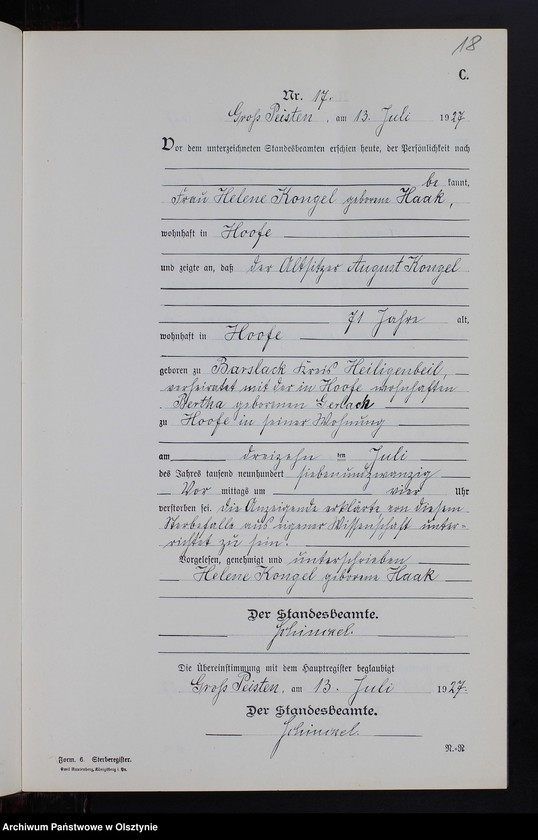 18
C.
Nr. 17.
Groß Peisten, am 13. Juli 1927
Vor dem unterzeichneten Standesbeamten erschien heute, der Persönlichkeit nach
be kannt,
Frau Helene Kongel geborene Haak,
wohnhaft in Hoofe
und zeigte an, daß der Altsitzer August Kongel
71 Jahre alt,
wohnhaft in Hoofe
geboren zu Barslack Kreis Heiligenbeil,
verheiratet mit der in Hoofe wohnhaften
Bertha geborenen Gerlach
zu Hoofe in seiner Wohnung
am dreizehn ten Juli
des Jahres tausend neunhundert siebenundzwanzig
Vor mittags um vier Uhr
verstorben sei. Die Anzeigende erklärte von diesem
Sterbefalle aus eigener Wissenschaft unter-
richtet zu sein.
Vorgelesen, genehmigt und unterschrieben
Helene Kongel geborene Haak
Der Standesbeamte.
Die Übereinstimmung mit dem Hauptregister beglaubigt
Groß Peisten, am 13. Juli 1927.
Der Standesbeamte.
N.-R
Form. 6. Sterberegister.
Archiwum Państwowe w Olsztynie